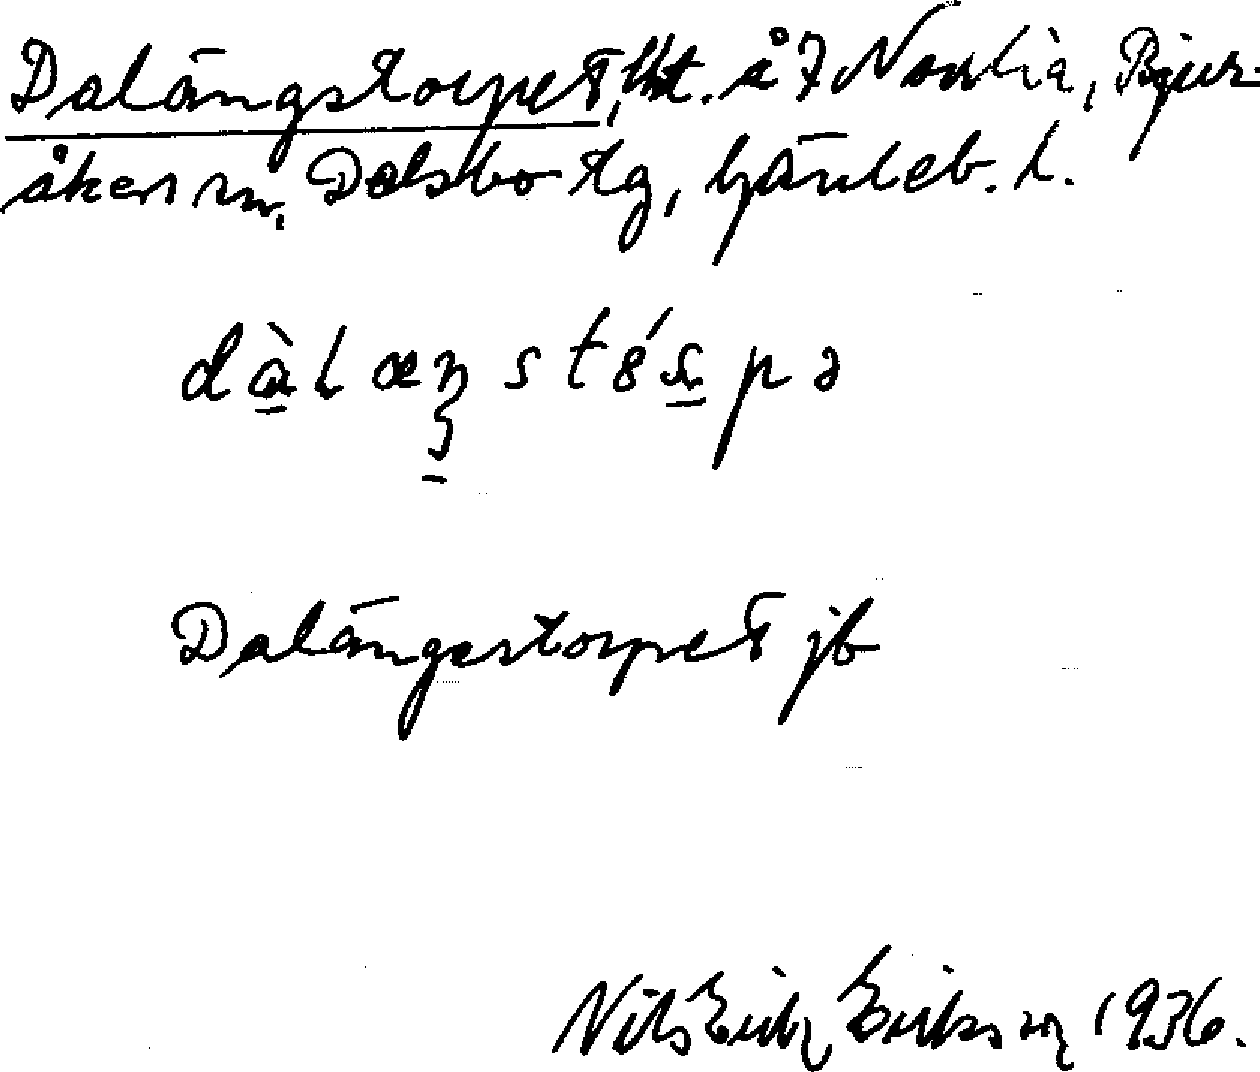 Dalängstorpet, lht. å 7 Norrlia, Bjur-
åkers sn, Delsbo tg, Gävleb. l.
dàlæŋstórpə
Dalängstorpet jb
Nils Erik Eriksson 1936.